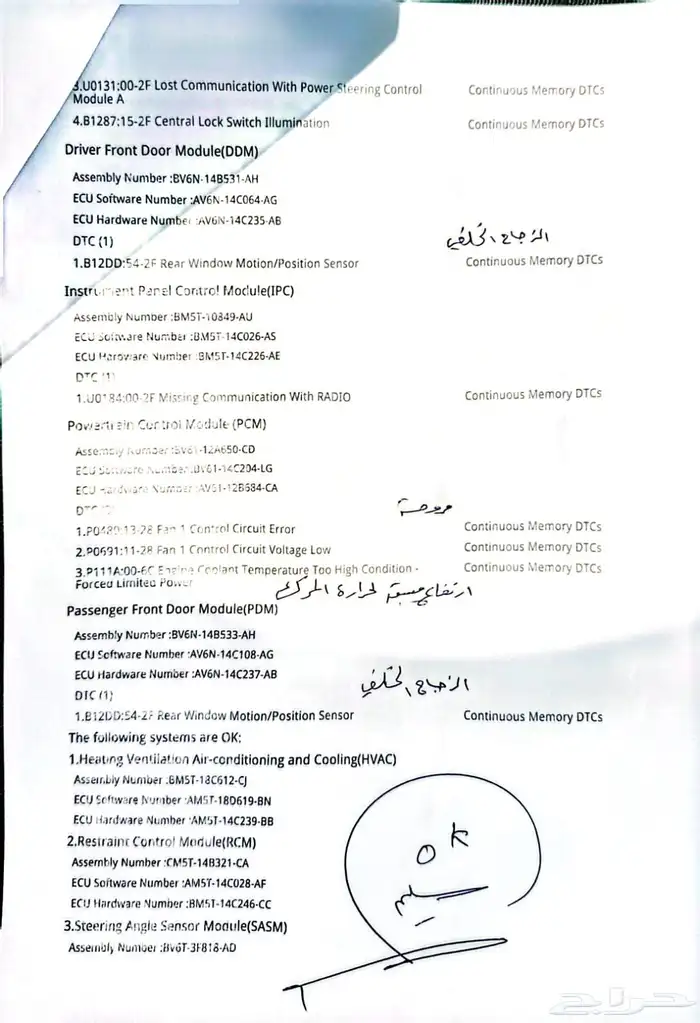 3.U0131:00-2F Lost Communication With Power Steering Control Module A Continuous Memory DTCs
4.B1287:15-2F Central Lock Switch Illumination Continuous Memory DTCs
Driver Front Door Module(DDM)
Assembly Number :BV6N-14B531-AH
ECU Software Number :AV6N-14C064-AG
ECU Hardware Number :AV6N-14C235-AB
DTC (1)
الزجاج الخلفي
1.B12DD:54-2F Rear Window Motion/Position Sensor Continuous Memory DTCs
Instrument Panel Control Module(IPC)
Assembly Number :BM5T-10849-AU
ECU Software Number :BM5T-14C026-AS
ECU Hardware Number :BM5T-14C226-AE
DTC (1)
1.U0184:00-2F Missing Communication With RADIO Continuous Memory DTCs
Powertrain Control Module (PCM)
Assembly Number :BV61-12A650-CD
ECU Software Number :BV61-14C204-LG
ECU Hardware Number :AV61-12B684-CA
DTC
مروحة
1.P0480:13-28 Fan 1 Control Circuit Error Continuous Memory DTCs
2.P0691:11-28 Fan 1 Control Circuit Voltage Low Continuous Memory DTCs
3.P111A:00-6C Engine Coolant Temperature Too High Condition - Forced Limited Power Continuous Memory DTCs
ارتفاع لحرارة المركبة
Passenger Front Door Module(PDM)
Assembly Number :BV6N-14B533-AH
ECU Software Number :AV6N-14C108-AG
ECU Hardware Number :AV6N-14C237-AB
DTC (1)
الزجاج الخلفي
1.B12DD:54-2F Rear Window Motion/Position Sensor Continuous Memory DTCs
The following systems are OK:
1.Heating Ventilation Air-conditioning and Cooling(HVAC)
Assembly Number :BM5T-18C612-CJ
ECU Software Number :AM5T-18D619-BN
ECU Hardware Number :AM5T-14C239-BB
2.Restraint Control Module(RCM)
Assembly Number :CM5T-14B321-CA
ECU Software Number :AM5T-14C028-AF
ECU Hardware Number :BM5T-14C246-CC
3.Steering Angle Sensor Module(SASM)
Assembly Number :BV6T-3F818-AD
OK
سليم
حراج